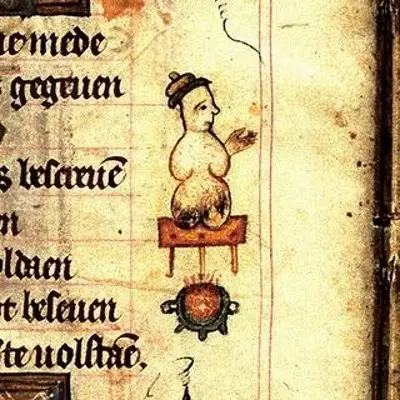 omede
gegeuen
s bescreuē
en
oldaen
t beseuen
te uolstaē.